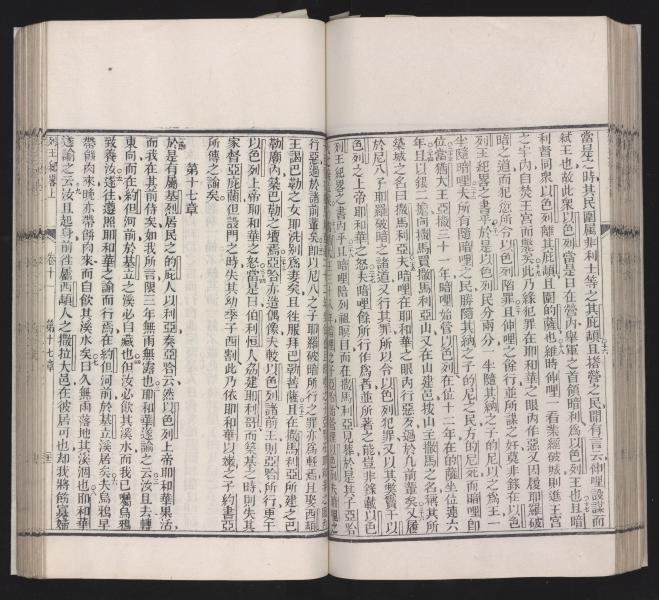 當是之時其民圍屬非利士等之其庇頓且搭營之民聞有言云伸哩設謀而
弒王也故此眾以色列當是日在營內舉軍之首領暗利為以色列王也且暗
利督同眾以色列離其庇頓且圍的薩也維時伸哩一看城則進王宮
之中內自焚王宮而斃矣此乃緣犯罪在耶和華之眼內作惡又因履耶羅破
暗之道而犯所令以色列陷罪且伸哩之餘行並所謀之奸莫非錄在以色
列王紀畧之書乎於是以色列民分兩分一半隨其納之子的尼以之為王一
半隨暗哩夫所有隨暗哩之民勝隨其納之子的尼之民方的尼死而暗哩即
位當猶大王亞撒三十一年暗哩始管以色列在位十二年在的薩坐位連六
年且以銀二擔向撒馬買撒馬利亞山又在山建邑按山主撒馬之名稱其所
築城之名曰撒馬利亞夫暗哩在耶和華之眼內行惡過於凡前輩矣又履
於尼八子耶羅破暗之諸道又行其罪所以令以色列犯罪又以其干以
色列之上帝耶和華之怒夫暗哩餘所行作為者並所著之能豈非錄載以色
列王紀畧之書內乎且暗哩陪列祖瞑目而在撒馬利亞見葬於是其子亞哈
行亞過於諸前輩矣以尼八之子耶羅破暗所行之罪亦為輕焉且娶西頓
王謁巴勒之女耶洗別為妻矣且往服拜巴勒菩薩且在撒馬利亞所建之巴
勒廟內築巴勒之壇焉亞哈亦造偶像夫較以色列諸前王則亞哈所行更干
以色列上帝耶和華之怒當是日伯利恒人劦建耶利哥而築基之時則失其
家督亞庇蘭但設門之時失其幼季子西割此乃依耶和華以嫩之子約書亞
所傳之諭矣
第十七章
於是有屬基列居民之的庇人以利亞奏亞哈云然以色列上帝耶和華果活
而我在其前侍矣如我所言限三年無雨無露也耶和華遂諭之云汝且去轉
東向而在約但河前於基立之溪必自藏也但汝必飲其溪水而我已囑烏鴉
致養汝遂往遵照耶和華之諭而行焉在約但河前於基立溪居矣夫烏鴉早
帶餅肉來晚亦帶餅肉來而自飲其溪水矣日久無雨落地其溪涸也耶和華
遂諭之云汝且起身前往屬西頓人之撒拉大邑在彼居可也却我將飭寡婦
列王紀畧上
卷十一
第十七章